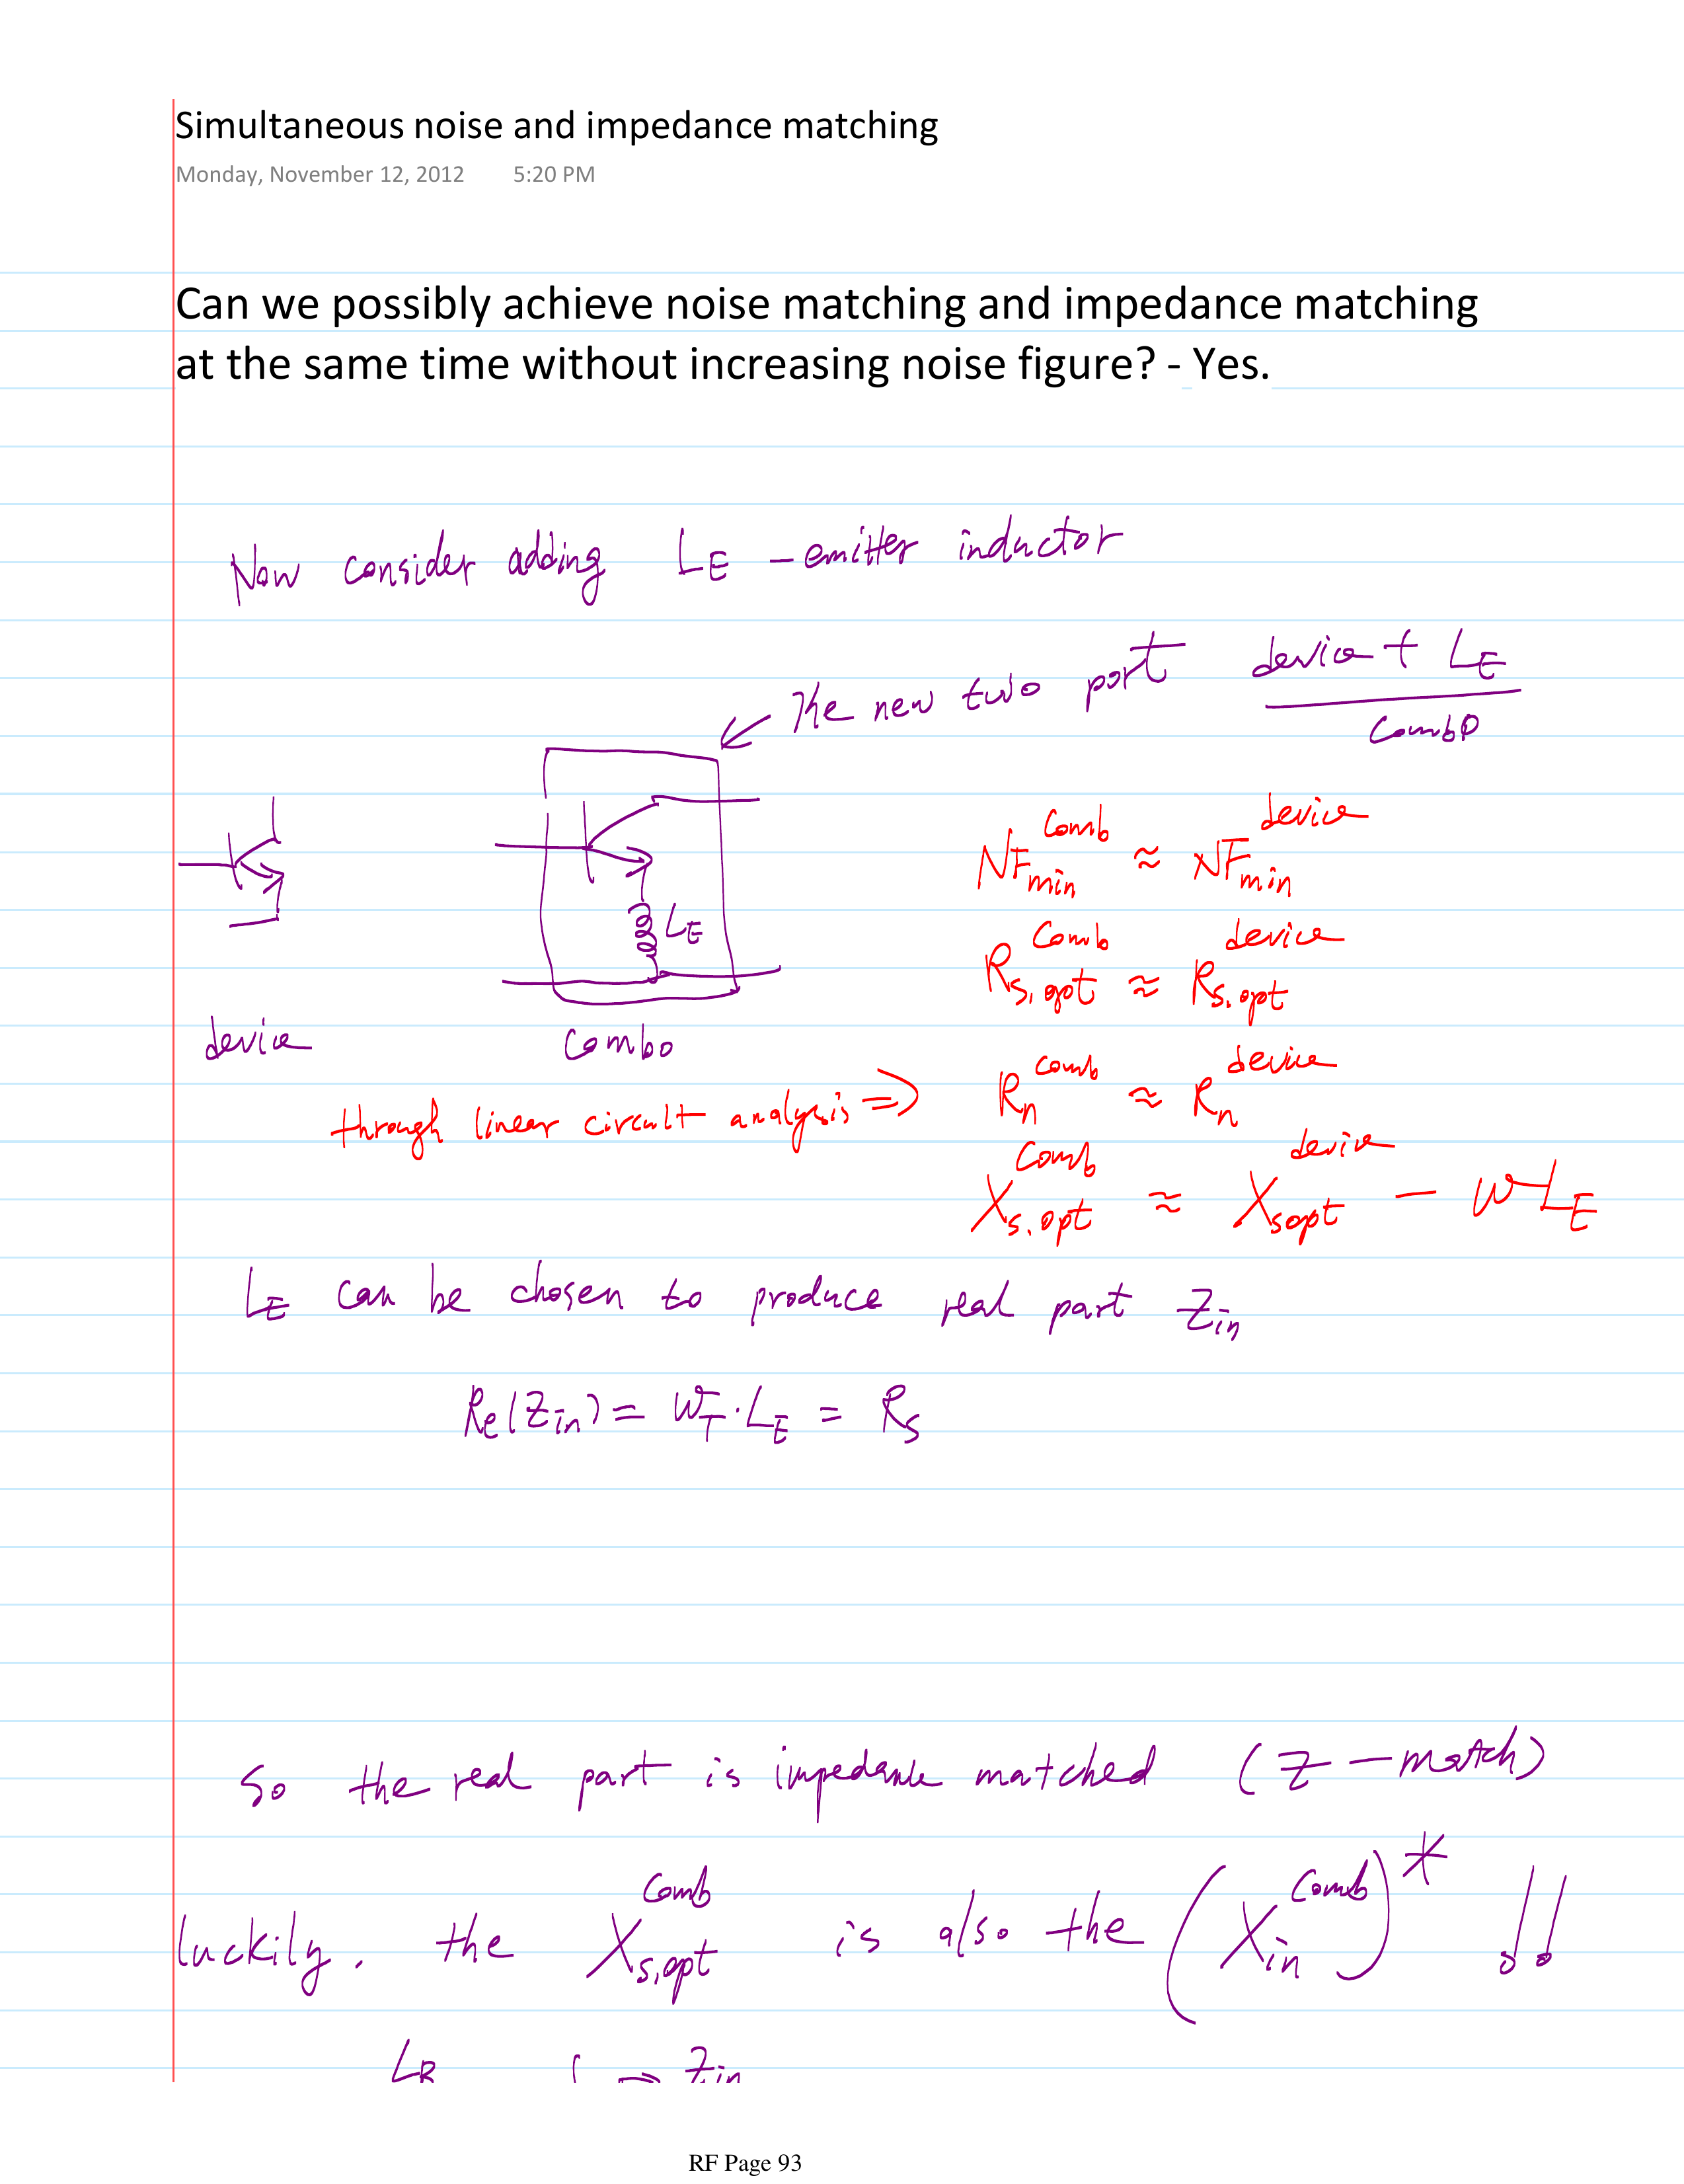 Simultaneous noise and impedance matching
Monday, November 12, 2012 5:20 PM
Can we possibly achieve noise matching and impedance matching
at the same time without increasing noise figure? - Yes.
Now consider adding L_E - emitter inductor
The new two port device + L_E
combo
NF_min^comb ≈ NF_min^device
L_E
R_s,opt^comb ≈ R_s,opt^device
device combo
R_n^comb ≈ R_n^device
through linear circuit analysis ⇒
X_s,opt^comb ≈ X_sopt^device - ωL_E
L_E can be chosen to produce real part Z_in
Re(Z_in) = ω_T · L_E = R_s
So the real part is impedance matched (Z-match)
luckily. the X_s,opt^comb is also the (X_in^comb)* !!
L_B → Z_in
RF Page 93